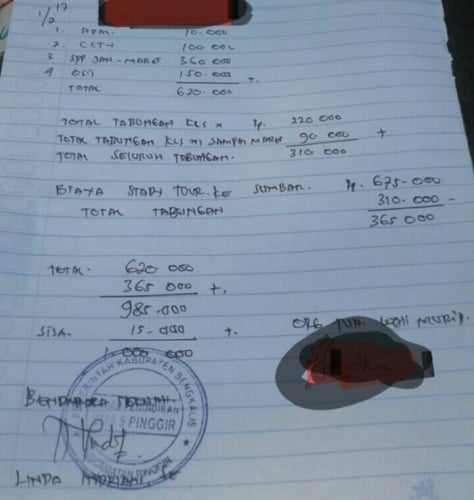 1/2 17
1. ADM. 10.000
2. CCTV 100 000
3 SPP JAN - MARET 360 000
4 OSIS 150.000 +.
TOTAL 620.000
TOTAL TABUNGAN KLS X Rp. 220 000
TOTAL TABUNGAN KLS XI SAMPAI MARET 90 000 +
TOTAL SELURUH TABUNGAN. 310 000
BIAYA STADY TOUR. KE SUMBAR. Rp. 675.000.
TOTAL TABUNGAN 310.000 -
365 000
TOTAL. 620 000
365 000 +.
985.000
SISA. 15.000 +.
1.000 000
ORG TUA WALI MURID.
BENDAHARA SEKOLAH
PEMERINTAH KABUPATEN BENGKALIS
PENDIDIKAN
PINGGIR
KECAMATAN PINGGIR
LINDA